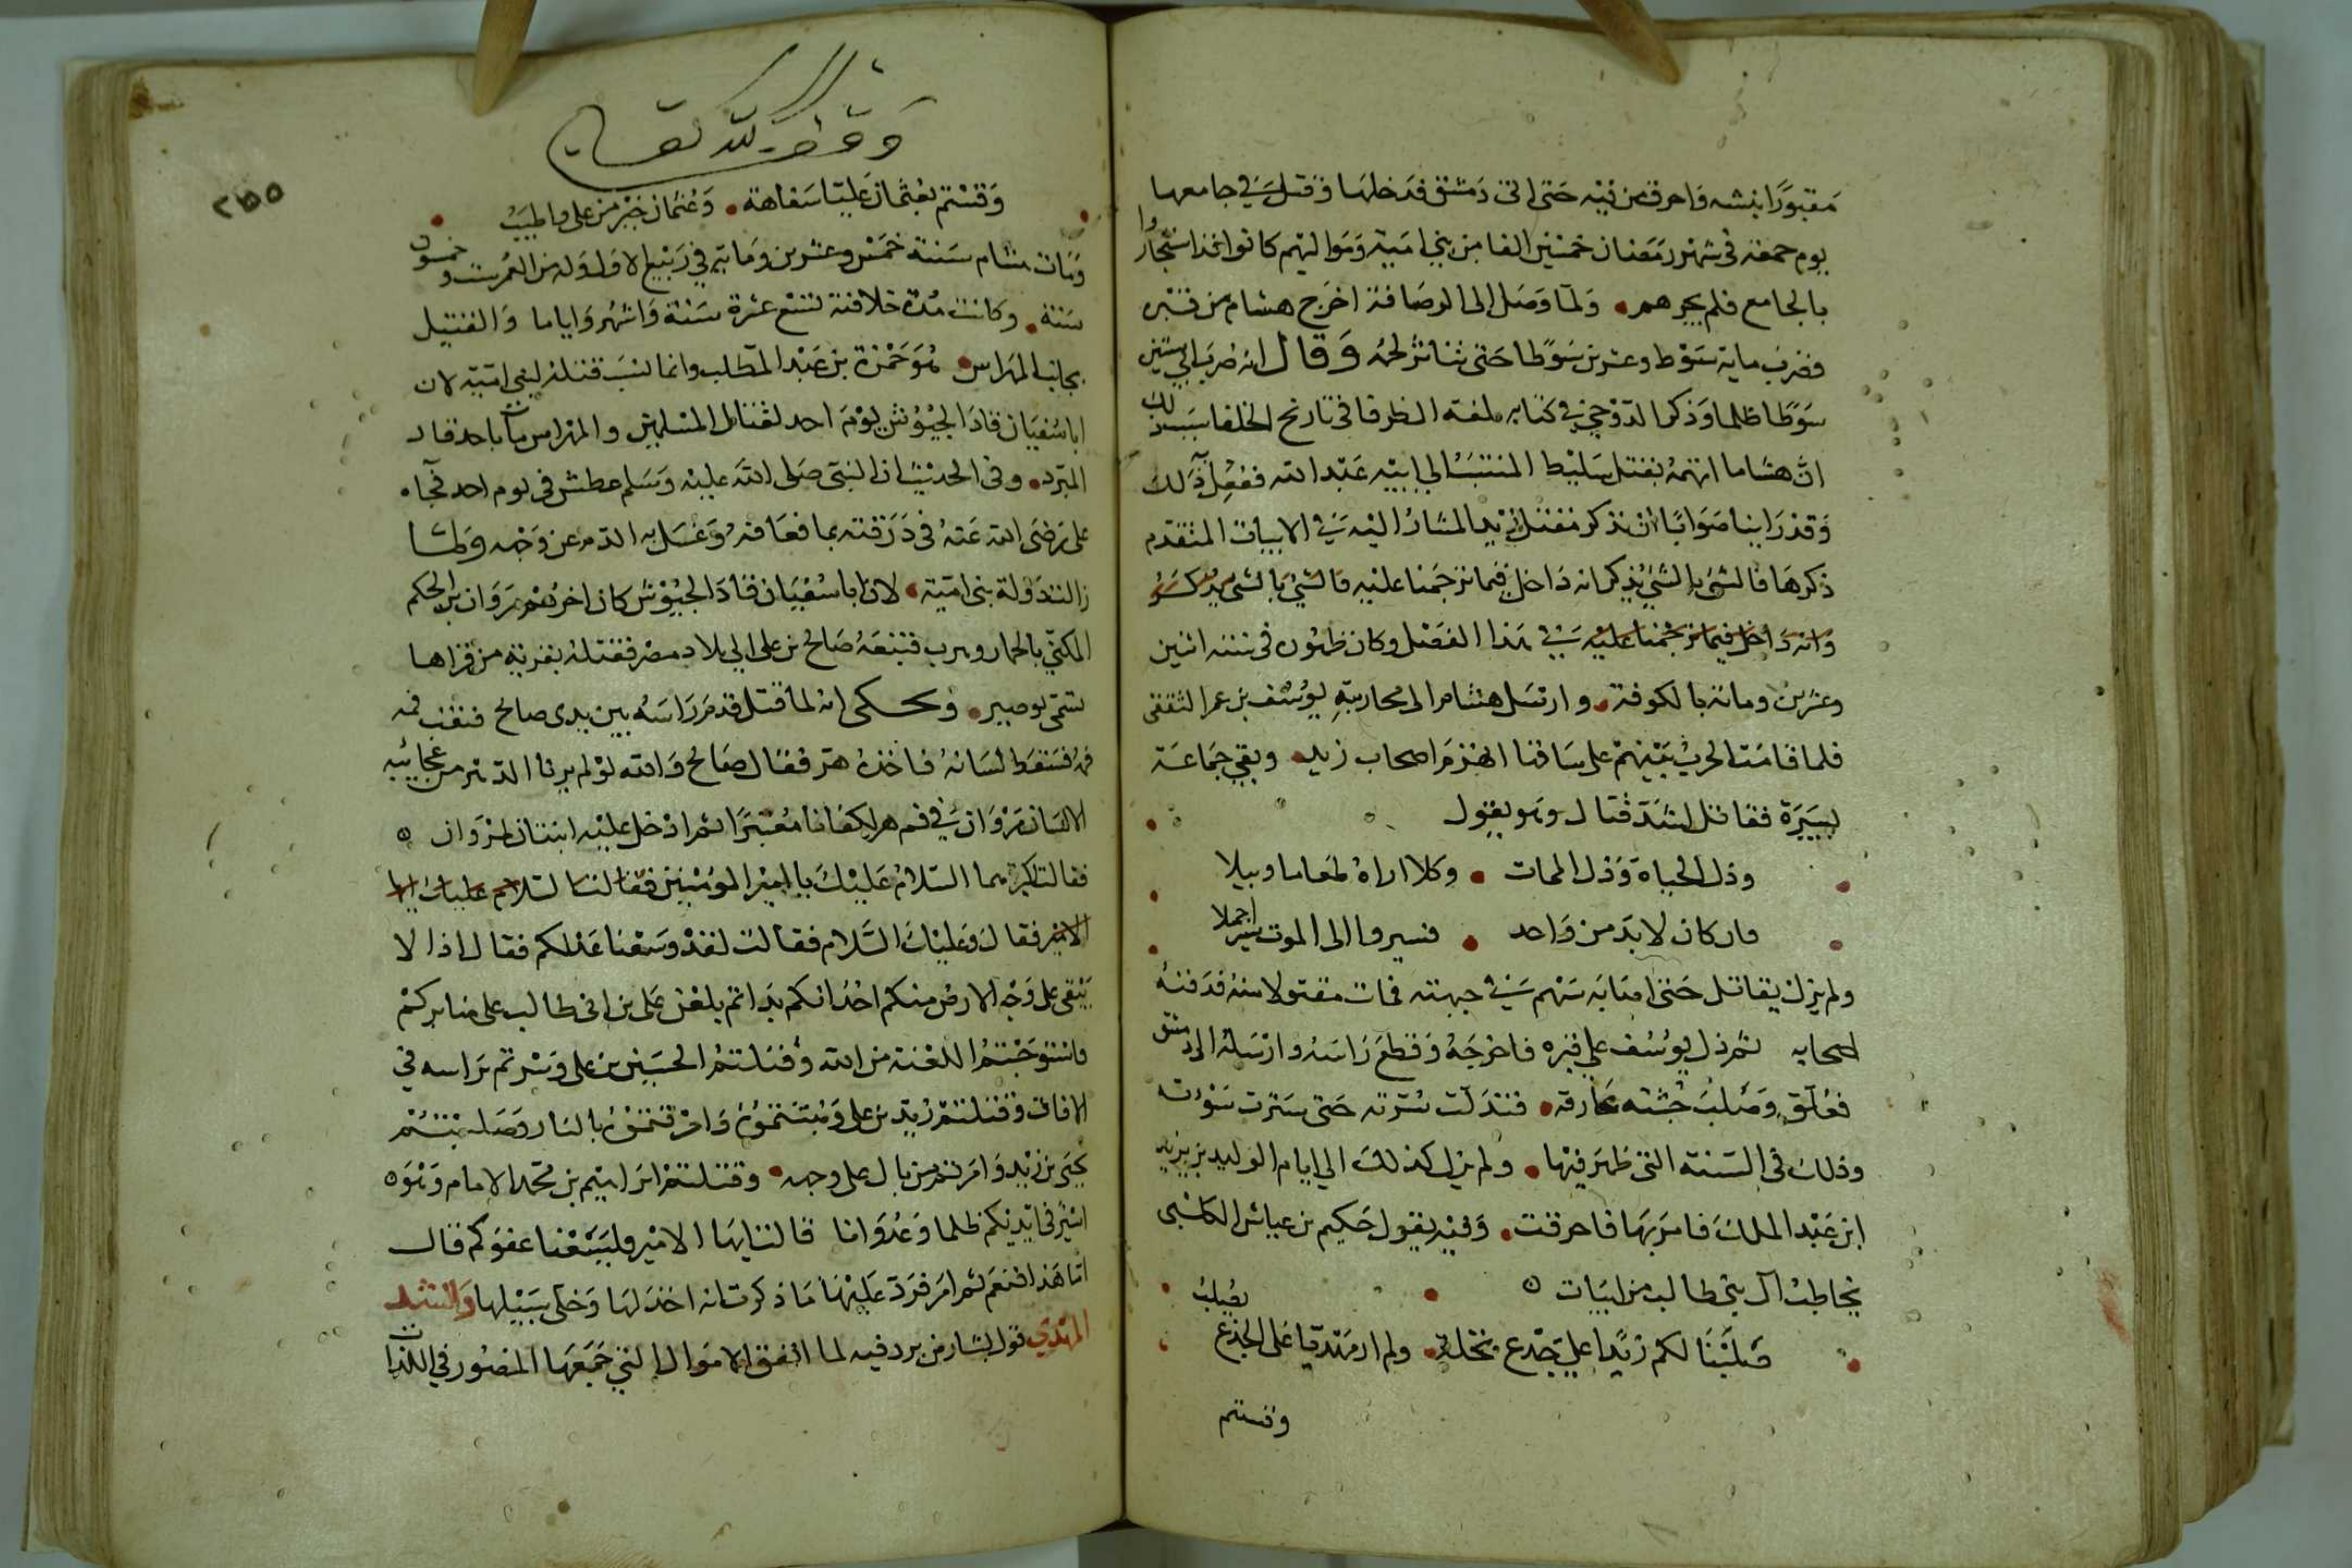 مقبورا نبشه واحرق من فيه حتى اتى دمشق فدخلها وقتل في جامعها
يوم جمعة في شهر رمضان خمسين الفا من بني امية ومواليهم كانوا قد استجاروا
بالجامع فلم يجرهم ولما وصل الى الرصافة اخرج هشام من قبره
فضرب ماية سوط وعشرين سوطا حتى تناثر لحمه وقال انه ضرب ابي ستين
سوطا ظلما وذكر الدوحي في كتابه بلغة الظرفا في تاريخ الخلفا سبب ذلك
ان هشاما اتهمه بقتل سليط المنتسب الى ابيه عبد الله ففعل ذلك
وقد راينا صوابا ان نذكر مقتل زيد المشار اليه في الابيات المتقدم
ذكرها فالشي بالشي يذكر انه داخل فيما ترجمنا عليه فالشي بالشي يذكر
وانه داخل فيما ترجمنا عليه في هذا الفصل وكان ظهوره في سنة اثنين
وعشرين ومائة بالكوفة وارسل هشام الى محاربته يوسف بن عمر الثقفي
فلما قامت الحرب بينهم على ساقها انهزم اصحاب زيد وبقي جماعة
يسيرة فقاتل اشد قتال وهو يقول
وذل الحياة وذل الممات وكلا اراه طعاما وبيلا
فان كان لابد من واحد فسيروا الى الموت سيرا جملا
ولم يزل يقاتل حتى اصابه سهم في جبهته فمات مقتولا منه فدفنه
اصحابه ثم دل يوسف على قبره فاخرجه وقطع راسه وارسله الى دمشق
فعلق وصلب جثته عارية فتدلت سرته حتى سترت سوءته
وذلك في السنة التي ظهر فيها ولم يزل كذلك الى ايام الوليد بن يزيد
ابن عبد الملك فامر بها فاحرقت وفيه يقول حكيم بن عياش الكلبي
يخاطب آل بني طالب من ابيات
صلبنا لكم زيدا على جذع نخلة ولم ار مهديا على الجذع يصلب
وقستم
وقف لله تعالى
٢٥٥
وقستم بعثمان عليا سفاهة وعثمان خير من علي واطيب
ومات هشام سنة خمس وعشرين وماية في ربيع الاول وله من العمر ست وخمسون
سنة وكانت مدة خلافته تسع عشرة سنة واشهر واياما والقتيل
بجانب المهراس هو حمزة بن عبد المطلب وانما نسب قتله لبني امية لان
ابا سفيان قاد الجيوش يوم احد لقتال المسلمين والمهراس ماء باحد قاله
المبرد وفي الحديث ان النبي صلى الله عليه وسلم عطش في يوم احد فجاه
علي رضي الله عنه في درقته بما فعافه وغسل به الدم عن وجهه ولما
زالت دولة بني امية لان ابا سفيان قاد الجيوش كان اخرهم مروان بن الحكم
المكنى بالحمار وهرب فتبعه صالح بن علي الى بلاد مصر فقتله بقرية من قراها
تسمى بوصير ويحكى انه لما قتل قدم راسه بين يدي صالح فنفض فمه
فسقط لسانه فاخذه هر فقال صالح والله لو لم يرنا الدهر من عجائبه
الا لسان مروان في فم هر لكفانا معتبرا ثم ادخل عليه ابنتان لمروان
فقالت اكبرهما السلام عليك يا امير المؤمنين فقال لنا السلام عليك ايها
الامير فقال وعليك السلام فقالت لقد وسعنا عدلكم فقال اذا لا
يبقى على وجه الارض منكم احد انكم بداتم بلعن علي بن ابي طالب على منابركم
فاستوجبتم اللعنة من الله وقتلتم الحسين بن علي وسرتم براسه في
الافاق وقتلتم زيد بن علي ونبشتموه واحرقتموه بالنار وصلبتم
يحيى بن زيد وامرتم من بال على وجهه وقتلتم ابراهيم بن محمد الامام وهو
اسير في ايديكم ظلما وعدوانا قالت ايها الامير فليسعنا عفوكم قال
اما هذا فنعم ثم امر فرد عليها ما ذكرت انه اخذ لها وخلى سبيلها وانشد
المهدي قول بشار بن برد فيه لما انفق الاموال التي جمعها المنصور في اللذات